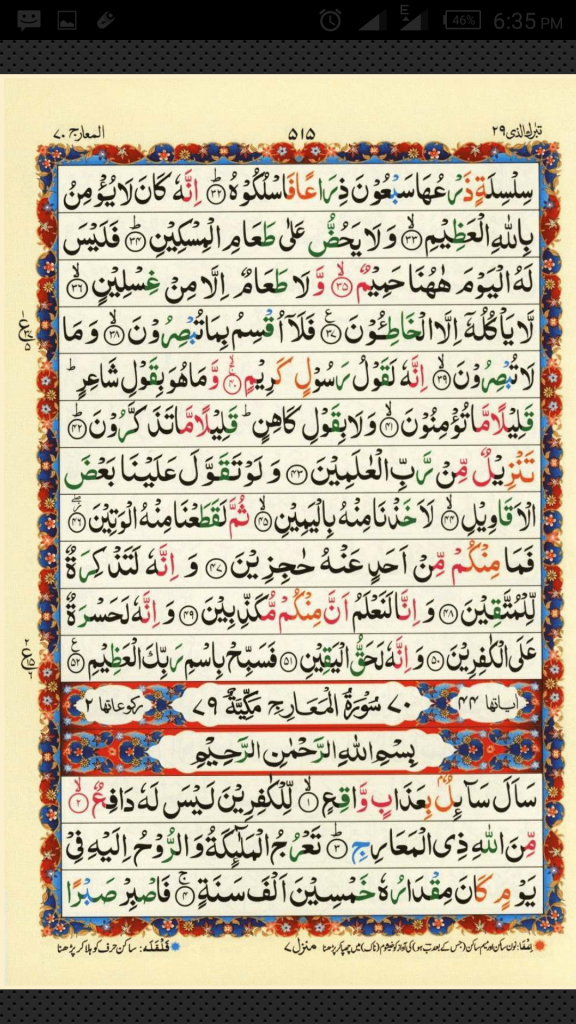 46% 6:35 PM
تبٰرك الذی ٢٩ ٥١٥ المعارج ٧٠
سِلْسِلَةٍ ذَرْعُهَا سَبْعُوْنَ ذِرَاعًا فَاسْلُكُوْهُ ؕ﴿۳۲﴾ اِنَّهٗ كَانَ لَا يُؤْمِنُ
بِاللّٰهِ الْعَظِيْمِ ۙ﴿۳۳﴾ وَ لَا يَحُضُّ عَلٰى طَعَامِ الْمِسْكِيْنِ ؕ﴿۳۴﴾ فَلَيْسَ
لَهُ الْيَوْمَ هٰهُنَا حَمِيْمٌ ۙ﴿۳۵﴾ وَّ لَا طَعَامٌ اِلَّا مِنْ غِسْلِيْنٍ ۙ﴿۳۶﴾
لَّا يَاْكُلُهٗۤ اِلَّا الْخَاطِـُٔوْنَ ﴿۳۷﴾ فَلَاۤ اُقْسِمُ بِمَا تُبْصِرُوْنَ ۙ﴿۳۸﴾ وَ مَا
لَا تُبْصِرُوْنَ ۙ﴿۳۹﴾ اِنَّهٗ لَقَوْلُ رَسُوْلٍ كَرِيْمٍ ۚۙ﴿۴۰﴾ وَّ مَا هُوَ بِقَوْلِ شَاعِرٍ ؕ
قَلِيْلًا مَّا تُؤْمِنُوْنَ ۙ﴿۴۱﴾ وَ لَا بِقَوْلِ كَاهِنٍ ؕ قَلِيْلًا مَّا تَذَكَّرُوْنَ ؕ﴿۴۲﴾
تَنْزِيْلٌ مِّنْ رَّبِّ الْعٰلَمِيْنَ ﴿۴۳﴾ وَ لَوْ تَقَوَّلَ عَلَيْنَا بَعْضَ
الْاَقَاوِيْلِ ۙ﴿۴۴﴾ لَاَخَذْنَا مِنْهُ بِالْيَمِيْنِ ۙ﴿۴۵﴾ ثُمَّ لَقَطَعْنَا مِنْهُ الْوَتِيْنَ ﴿۴۶﴾
فَمَا مِنْكُمْ مِّنْ اَحَدٍ عَنْهُ حٰجِزِيْنَ ﴿۴۷﴾ وَ اِنَّهٗ لَتَذْكِرَةٌ
لِّلْمُتَّقِيْنَ ﴿۴۸﴾ وَ اِنَّا لَنَعْلَمُ اَنَّ مِنْكُمْ مُّكَذِّبِيْنَ ﴿۴۹﴾ وَ اِنَّهٗ لَحَسْرَةٌ
عَلَى الْكٰفِرِيْنَ ﴿۵۰﴾ وَ اِنَّهٗ لَحَقُّ الْيَقِيْنِ ﴿۵۱﴾ فَسَبِّحْ بِاسْمِ رَبِّكَ الْعَظِيْمِ ﴿۵۲﴾
اٰیاتها ٤٤ ٧٠ سُوْرَةُ الْمَعَارِجِ مَكِّيَّةٌ ٧٩ رکوعاتها ٢
بِسْمِ اللّٰهِ الرَّحْمٰنِ الرَّحِيْمِ
سَاَلَ سَآىِٕلٌۢ بِعَذَابٍ وَّاقِعٍ ۙ﴿۱﴾ لِّلْكٰفِرِيْنَ لَيْسَ لَهٗ دَافِعٌ ۙ﴿۲﴾
مِّنَ اللّٰهِ ذِى الْمَعَارِجِ ؕ﴿۳﴾ تَعْرُجُ الْمَلٰٓىِٕكَةُ وَ الرُّوْحُ اِلَيْهِ فِىْ
يَوْمٍ كَانَ مِقْدَارُهٗ خَمْسِيْنَ اَلْفَ سَنَةٍ ۚ﴿۴﴾ فَاصْبِرْ صَبْرًا
منزل ٧
قلقلہ: ساکن حرف کو ہلا کر پڑھنا